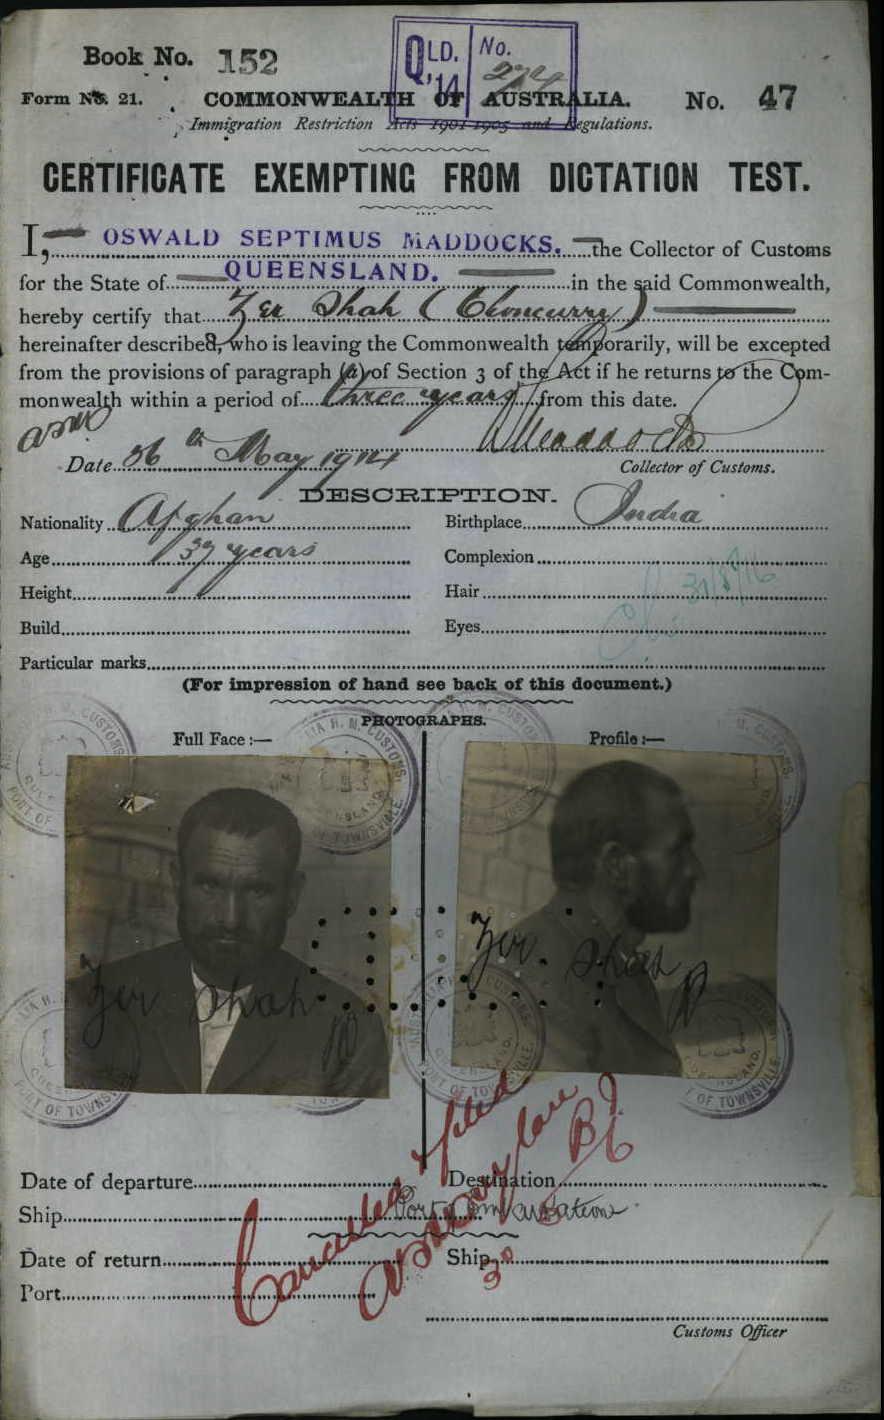 Book No. 152
QLD. '14 No. 274
Form No. 21. COMMONWEALTH OF AUSTRALIA. No. 47
Immigration Restriction Acts 1901-1905 and Regulations.
CERTIFICATE EXEMPTING FROM DICTATION TEST.
I, OSWALD SEPTIMUS MADDOCKS. the Collector of Customs
for the State of QUEENSLAND. in the said Commonwealth,
hereby certify that Zer Shah (Cloncurry)
hereinafter described, who is leaving the Commonwealth temporarily, will be excepted
from the provisions of paragraph (a) of Section 3 of the Act if he returns to the Com-
monwealth within a period of three years from this date.
Maddocks
Date 26th May 1914 Collector of Customs.
DESCRIPTION.
Nationality Afghan Birthplace India
Age 37 years Complexion
Height Hair
31/8/16
Build Eyes
Particular marks
(For impression of hand see back of this document.)
PHOTOGRAPHS.
Full Face:— Profile:—
AUSTRALIA H. M. CUSTOMS. QUEENSLAND. PORT OF TOWNSVILLE.
Zer Shah Zer Shah
Cancelled & filed
Date of departure Destination
Ship Port of Embarkation
Date of return Ship
Port
Customs Officer